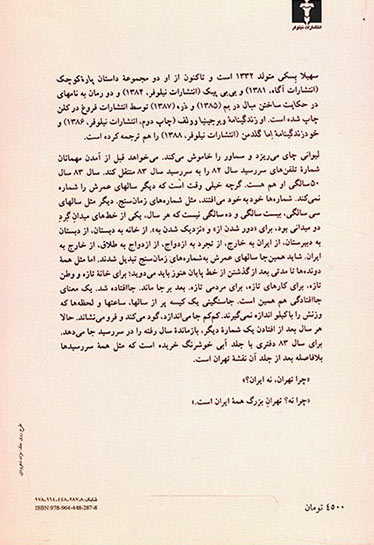 انتشارات نیلوفر
سهیلا بِسکی متولد ۱۳۳۲ است و تاکنون از او دو مجموعهٔ داستان پاره‌کوچک
(انتشارات آگاه، ۱۳۸۱) و بی‌بی پیک (انتشارات نیلوفر، ۱۳۸۴) و دو رمان به نامهای
در حکایت ساختن مبال در بم (۱۳۸۵) و ذره (۱۳۸۷) توسط انتشارات فروغ در کلن
چاپ شده است. او زندگینامهٔ ویرجینیا وولف (چاپ دوم، انتشارات نیلوفر، ۱۳۸۶) و
خودزندگینامهٔ اِما گلدمن (انتشارات نیلوفر، ۱۳۸۸) را هم ترجمه کرده است.
لیوانی چای می‌ریزد و سماور را خاموش می‌کند. می‌خواهد قبل از آمدن مهمانان
شمارهٔ تلفن‌های سررسید سال ۸۲ را به سررسید سال ۸۳ منتقل کند. سال ۸۳ سال
۵۰سالگی او هم هست. گرچه خیلی وقت است که دیگر سالهای عمرش را شماره
نمی‌کند. شماره‌ها خود به خود می‌افتند، مثل شماره‌های زمان‌سنج. دیگر مثل سالهای
سی سالگی، بیست سالگی و ده سالگی نیست که هر سال، یکی از خط‌های میدانِ گِردِ
دو میدانی بود، برای «دور شدن از» و «نزدیک شدن به». از خانه به دبستان، از دبستان
به دبیرستان، از ایران به خارج، از تجرد به ازدواج، از ازدواج به طلاق، از خارج به
ایران. شاید همین‌جا سالهای عمرش به‌شماره‌های زمان‌سنج تبدیل شدند. اما مثل همهٔ
دونده‌ها تا مدتی بعد از گذشتن از خط پایان هنوز باید می‌دوید؛ برای خانهٔ تازه و وطن
تازه، برای کارهای تازه، برای مردمی تازه. بعد برجا ماند. جاافتاده شد. یک معنای
جاافتادگی هم همین است. جاسنگینی یک کیسه پر از سالها، ساعتها و لحظه‌ها که
وزنش را با کیلو اندازه نمی‌گیرند. کم‌کم جا می‌اندازد، گود می‌کند و فرو می‌نشاند. حالا
هر سال بعد از افتادن یک شمارهٔ دیگر، بازماندهٔ سال رفته را در سررسید جا می‌دهد.
برای سال ۸۳ دفتری با جلد آبی خوشرنگ خریده است که مثل همهٔ سررسیدها
بلافاصله بعد از جلد آن نقشهٔ تهران است.
«چرا تهران، نه ایران؟»
«چرا نه؟ تهرانِ بزرگ همهٔ ایران است.»
شابک: ۸-۲۸۷-۴۴۸-۹۶۴-۹۷۸
ISBN: 978-964-448-287-8
۴۵۰۰ تومان